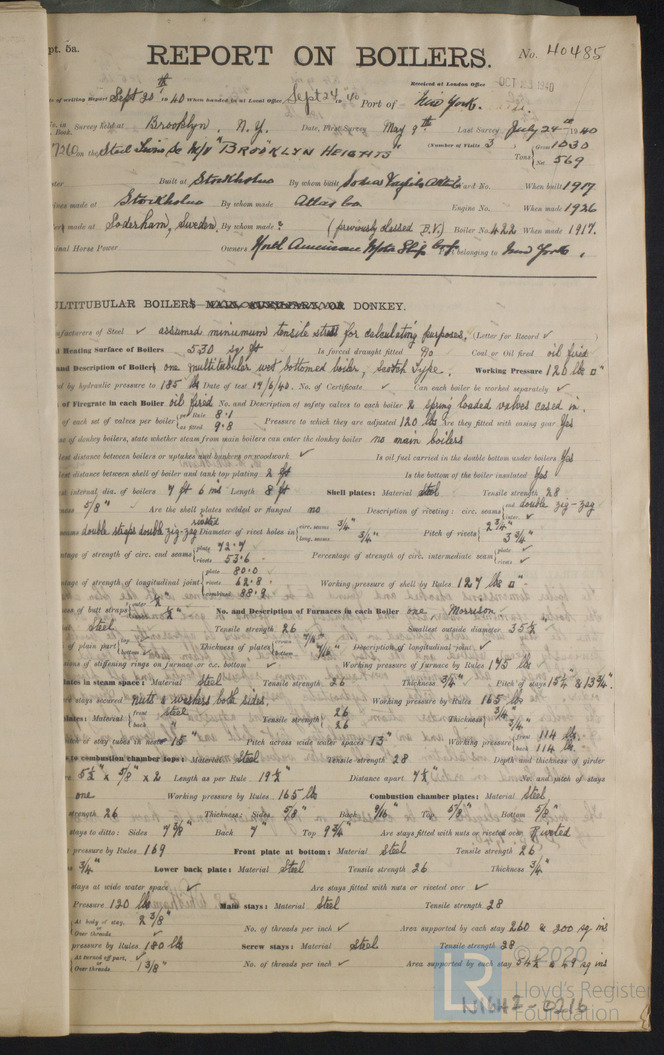 pt. 5a.
REPORT ON BOILERS.
No. 40485
Received at London Office
of writing Report Sept 20th 1940 When handed in at Local Office Sept 24 1940 Port of New York.
No. in Book. Survey held at Brooklyn, N.Y. Date, First Survey May 9th Last Survey July 24th 1940
on the Steel Twin Sc M/V "BROOKLYN HEIGHTS" (Number of Visits 3) Tons Gross 1030 Net 569
Built at Stockholm By whom built Yard No. When built 1917
made at Stockholm By whom made Atlas Co Engine No. When made 1926
made at Soderham, Sweden, By whom made ? (previously classed B.V.) Boiler No. 422 When made 1917.
Nominal Horse Power Owners North American Motor Ship Corp. belonging to New York.
MULTITUBULAR BOILERS MAIN, AUXILIARY, OR DONKEY.
Manufacturers of Steel ✓ assumed minimum tensile stress for calculating purposes, (Letter for Record ✓ )
Heating Surface of Boilers 530 sq ft Is forced draught fitted no Coal or Oil fired oil fired
and Description of Boilers one multitubular wet bottomed boiler, Scotch Type. Working Pressure 120 lbs □"
by hydraulic pressure to 185 lbs Date of test 19/6/40. No. of Certificate ✓ Can each boiler be worked separately ✓
of Firegrate in each Boiler oil fired No. and Description of safety valves to each boiler 2 spring loaded valves cased in.
of each set of valves per boiler per Rule 8.1 as fitted 9.8 Pressure to which they are adjusted 120 lbs Are they fitted with easing gear Yes
of donkey boilers, state whether steam from main boilers can enter the donkey boiler no main boilers
distance between boilers or uptakes and bunkers or woodwork ✓ Is oil fuel carried in the double bottom under boilers Yes
distance between shell of boiler and tank top plating 2 ft Is the bottom of the boiler insulated Yes
internal dia. of boilers 7 ft 6 ins Length 8 ft Shell plates: Material Steel Tensile strength 28
5/8" Are the shell plates welded or flanged no Description of riveting: circ. seams end double zig-zag inter. ✓
seams double straps double zig-zag riveted Diameter of rivet holes in circ. seams 3/4" long. seams 3/4" Pitch of rivets 2 3/4" 3 3/4"
Percentage of strength of circ. end seams plate 72.7 rivets 53.6 Percentage of strength of circ. intermediate seam plate ✓ rivets ✓
Percentage of strength of longitudinal joint plate 80.0 rivets 62.8 combined 88.9 Working pressure of shell by Rules 127 lbs □".
of butt straps outer inner No. and Description of Furnaces in each Boiler one, Morrison ✓
Steel Tensile strength 26 Smallest outside diameter 35 1/4"
of plain part top bottom ✓ Thickness of plates crown 7/16" bottom 7/16" Description of longitudinal joint ✓
of stiffening rings on furnace or c.c. bottom ✓ Working pressure of furnace by Rules 175 lbs
plates in steam space: Material Steel Tensile strength 26 Thickness 3/4" Pitch of stays 15 1/4" & 13 3/4".
are stays secured nuts & washers both sides. Working pressure by Rules 165 lbs
plates: Material front steel back " Tensile strength 26 26 Thickness 3/4" 3/4"
pitch of stay tubes in nests 15" Pitch across wide water spaces 13" Working pressure front 114 lbs. back 114 lbs.
to combustion chamber tops: Material Steel Tensile strength 28 Depth and thickness of girder
5 1/2" x 5/8" x 2 Length as per Rule 19 1/4" Distance apart 7 1/4" No. and pitch of stays
one Working pressure by Rules 165 lbs Combustion chamber plates: Material Steel
strength 26 Thickness: Sides 5/8" Back 9/16" Top 5/8" Bottom 5/8"
stays to ditto: Sides 7 3/8" Back 7" Top 9 3/4" Are stays fitted with nuts or riveted over Riveted
pressure by Rules 169 Front plate at bottom: Material Steel Tensile strength 26
3/4" Lower back plate: Material Steel Tensile strength 26 Thickness 3/4"
stays at wide water space ✓ Are stays fitted with nuts or riveted over ✓
Pressure 120 lbs Main stays: Material Steel Tensile strength 28
At body of stay, Over threads 2 3/8" No. of threads per inch ✓ Area supported by each stay 260 & 200 sq ins
pressure by Rules 180 lbs Screw stays: Material Steel Tensile strength 28
At turned off part, Over threads 1 3/8" No. of threads per inch ✓ Area supported by each stay 54 1/2 & 49 sq ins
© 2020
LR Lloyd's Register
Foundation
W1642-0216